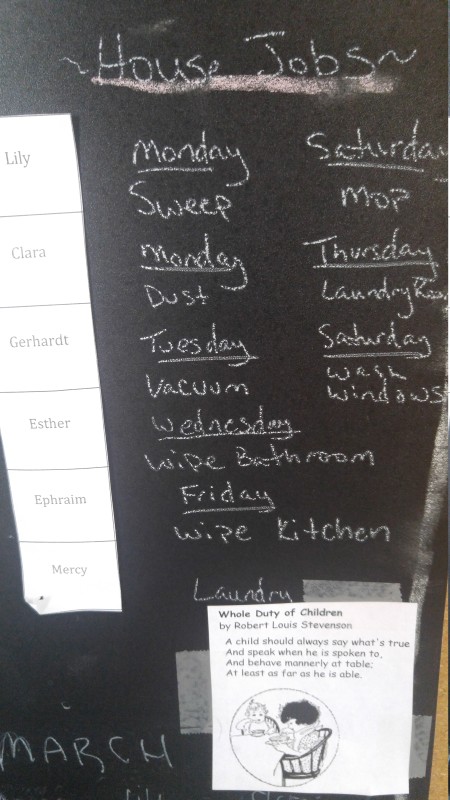 ~House Jobs~
Lily
Monday
Sweep
Saturday
Mop
Clara
Monday
Dust
Thursday
Laundry
Gerhardt
Tuesday
Vacuum
Saturday
Wash
Windows
Esther
Wednesday
Wipe Bathroom
Ephraim
Friday
Wipe Kitchen
Mercy
Laundry
Whole Duty of Children
by Robert Louis Stevenson
A child should always say what's true
And speak when he is spoken to,
And behave mannerly at table;
At least as far as he is able.
MARCH